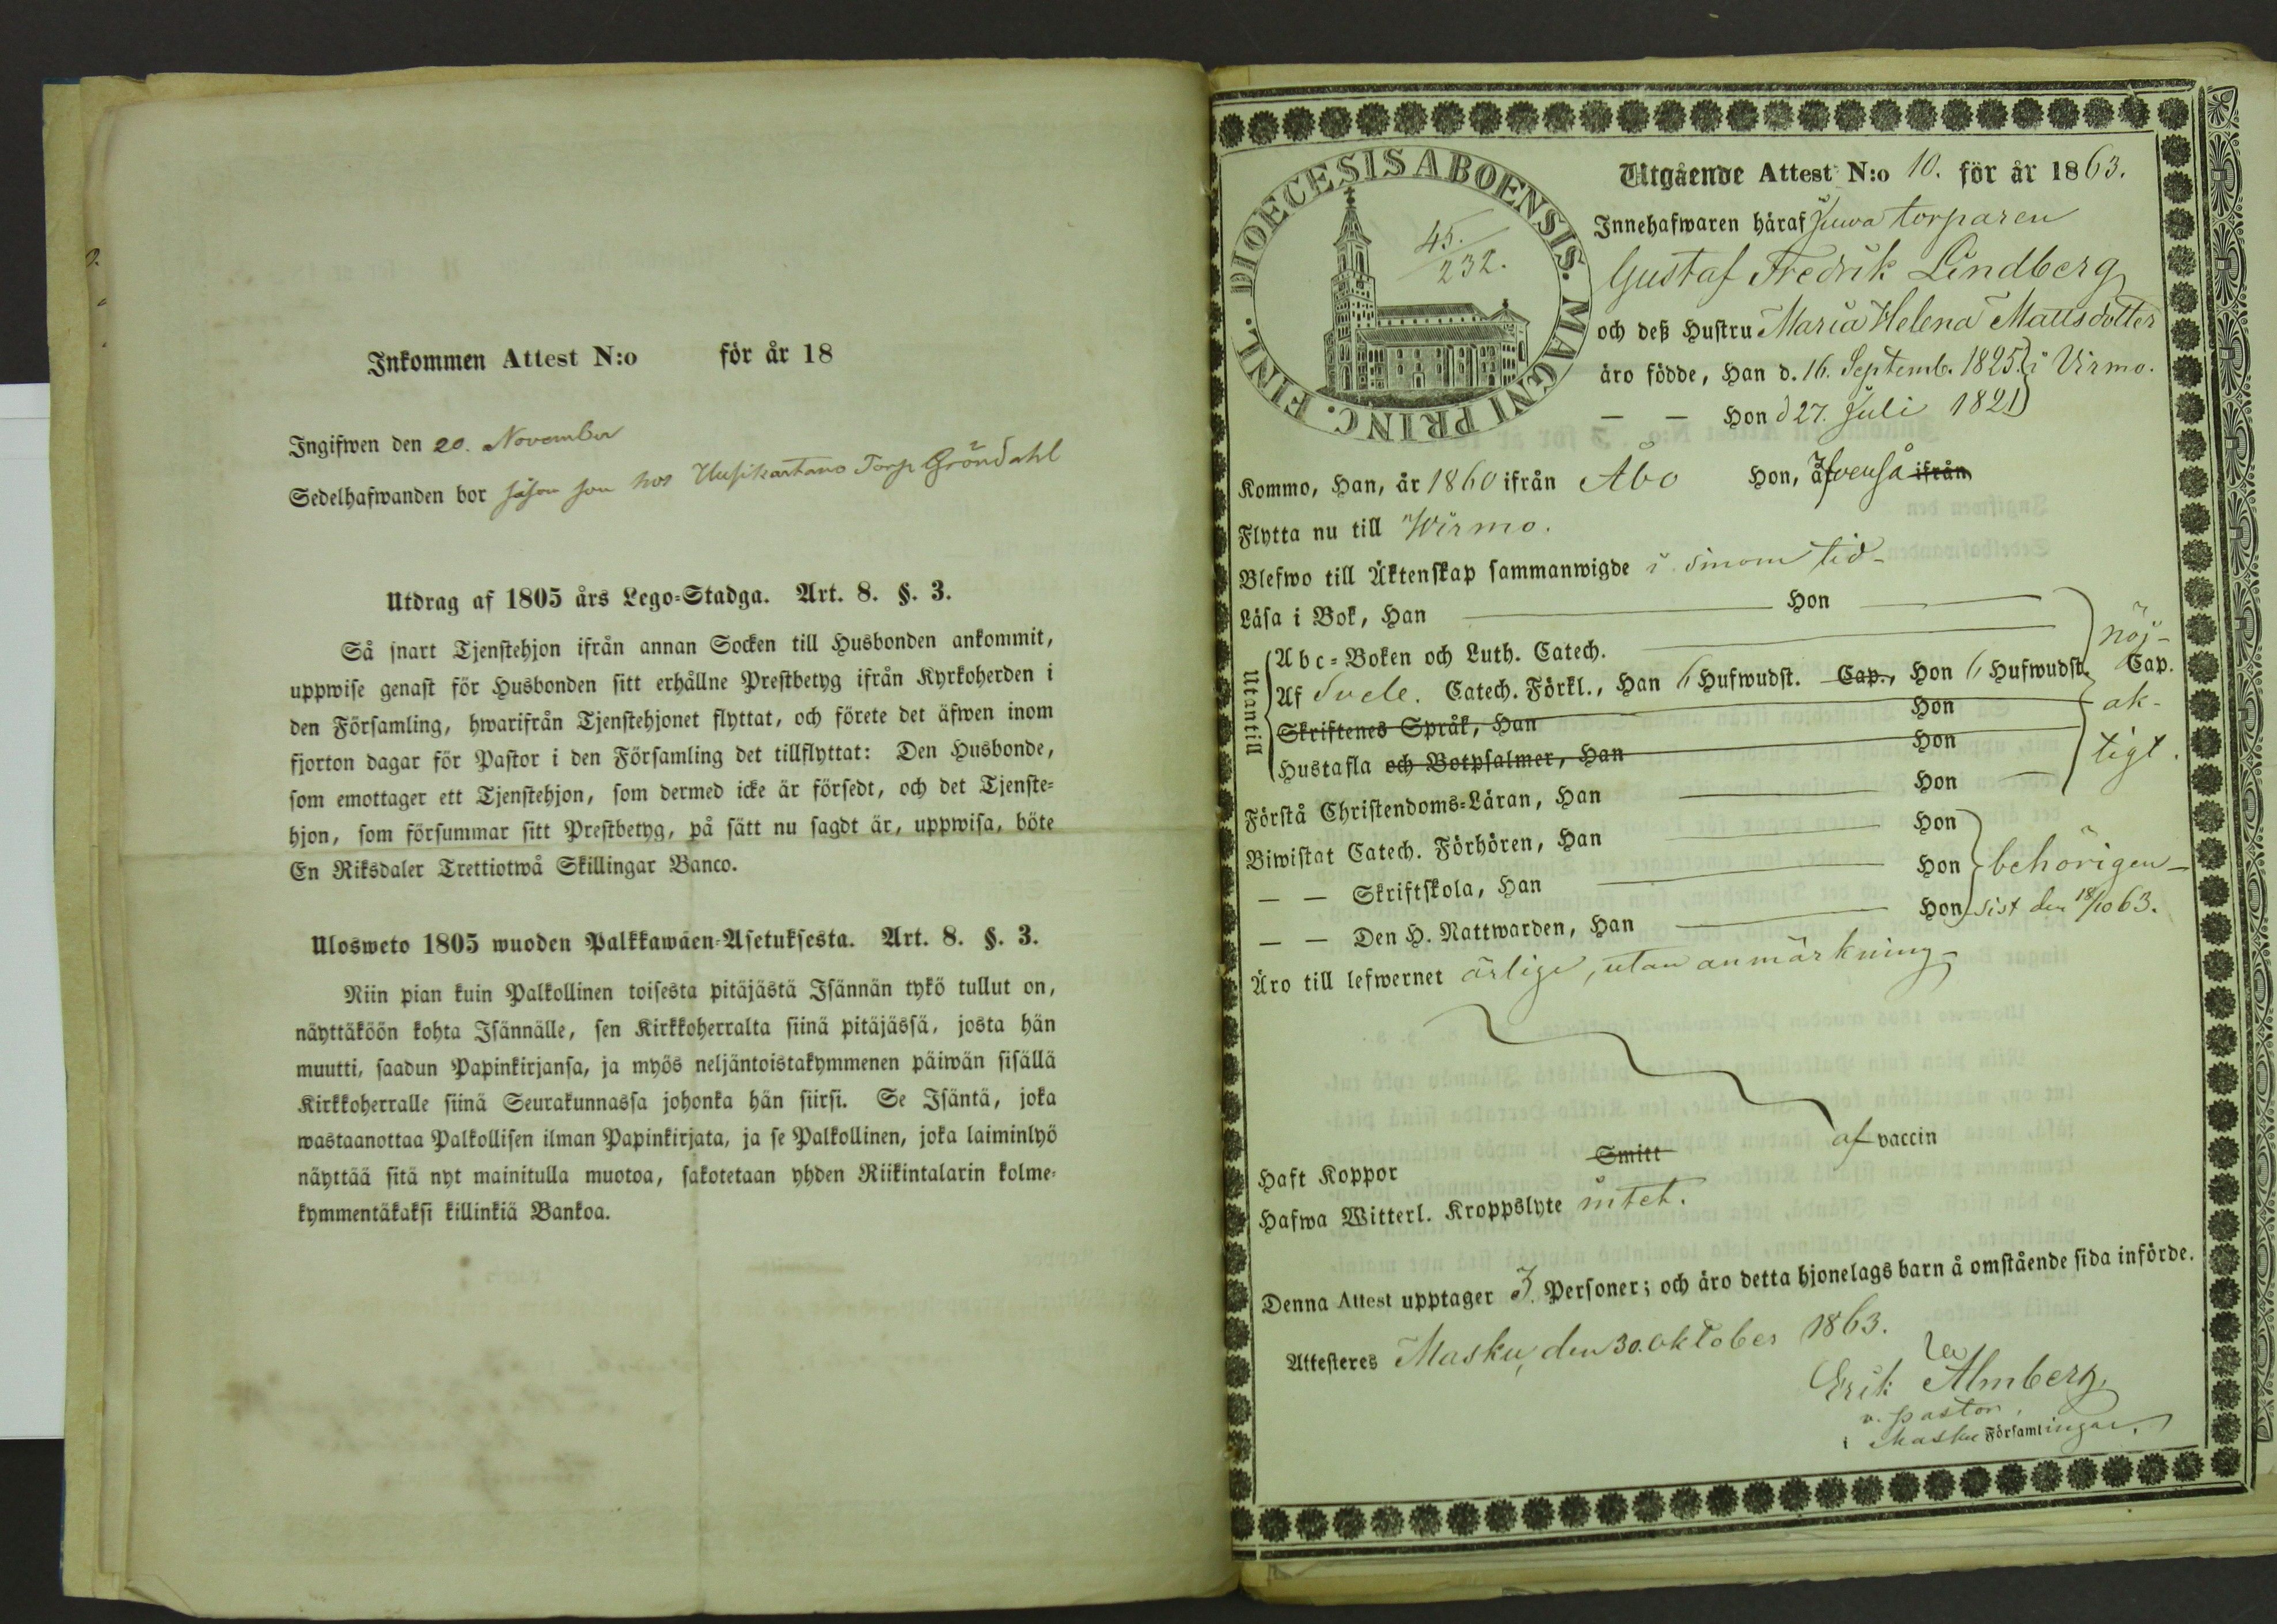 Inkommen Attest N:o för år 18
Ingifwen den 20. November
Sedelhafwanden bor såsom son hos Uusikartano Torp Gröndahl
Utdrag af 1805 års Lego-Stadga. Art. 8. §. 3.
Så snart Tjenstehjon ifrån annan Socken till Husbonden ankommit,
uppwise genast för Husbonden sitt erhållne Prestbetyg ifrån Kyrkoherden i
den Församling, hwarifrån Tjenstehjonet flyttat, och förete det äfwen inom
fjorton dagar för Pastor i den Församling det tillflyttat: Den Husbonde,
som emottager ett Tjenstehjon, som dermed icke är försedt, och det Tjenste-
hjon, som försummar sitt Prestbetyg, på sätt nu sagdt är, uppwisa, böte
En Riksdaler Trettiotwå Skillingar Banco.
Ulosweto 1805 wuoden Palkkawäen-Asetuksesta. Art. 8. §. 3.
Niin pian kuin Palkollinen toisesta pitäjästä Isännän tykö tullut on,
näyttäköön kohta Isännälle, sen Kirkkoherralta siinä pitäjässä, josta hän
muutti, saadun Papinkirjansa, ja myös neljäntoistakymmenen päiwän sisällä
Kirkkoherralle siinä Seurakunnassa johonka hän siirsi. Se Isäntä, joka
wastaanottaa Palkollisen ilman Papinkirjata, ja se Palkollinen, joka laiminlyö
näyttää sitä nyt mainitulla muotoa, sakotetaan yhden Riikintalarin kolme-
kymmentäkaksi killinkiä Bankoa.
DIOECESIS ABOENSIS. MAGNI PRINC. FINL.
45.
232.
Utgående Attest N:o 10. för år 1863.
Innehafwaren häraf Juva torparen
Gustaf Fredrik Lindberg
och deß Hustru Maria Helena Mattsdotter
äro födde, Han d. 16. Septemb. 1825. i Virmo.
— — Hon d 27. Juli 1821
Kommo, Han, år 1860 ifrån Åbo Hon, äfvenså ifrån
Flytta nu till Wirmo.
Blefwo till Äktenskap sammanwigde i sinom tid
Läsa i Bok, Han Hon
Utantill
Abc-Boken och Luth. Catech.
nöj-
Af Svele. Catech. Förkl., Han 6 Hufwudst. Cap., Hon 6 Hufwudst. Cap.
Skriftenes Språk, Han Hon ak-
Hustafla och Botpsalmer, Han Hon
tigt.
Förstå Christendoms-Läran, Han Hon
Biwistat Catech. Förhören, Han Hon
— — Skriftskola, Han Hon behörigen
— — Den H. Nattwarden, Han Hon sist den 18/10 63.
Äro till lefwernet ärlige, utan anmärkning
Haft Koppor Smitt af vaccin
Hafwa Witterl. Kroppslyte intet.
Denna Attest upptager 3. Personer; och äro detta hjonelags barn å omstående sida införde.
Attesteres Masku, den 30. Oktober 1863.
Erik Almberg,
v. pastor,
i Masku Församlingar.